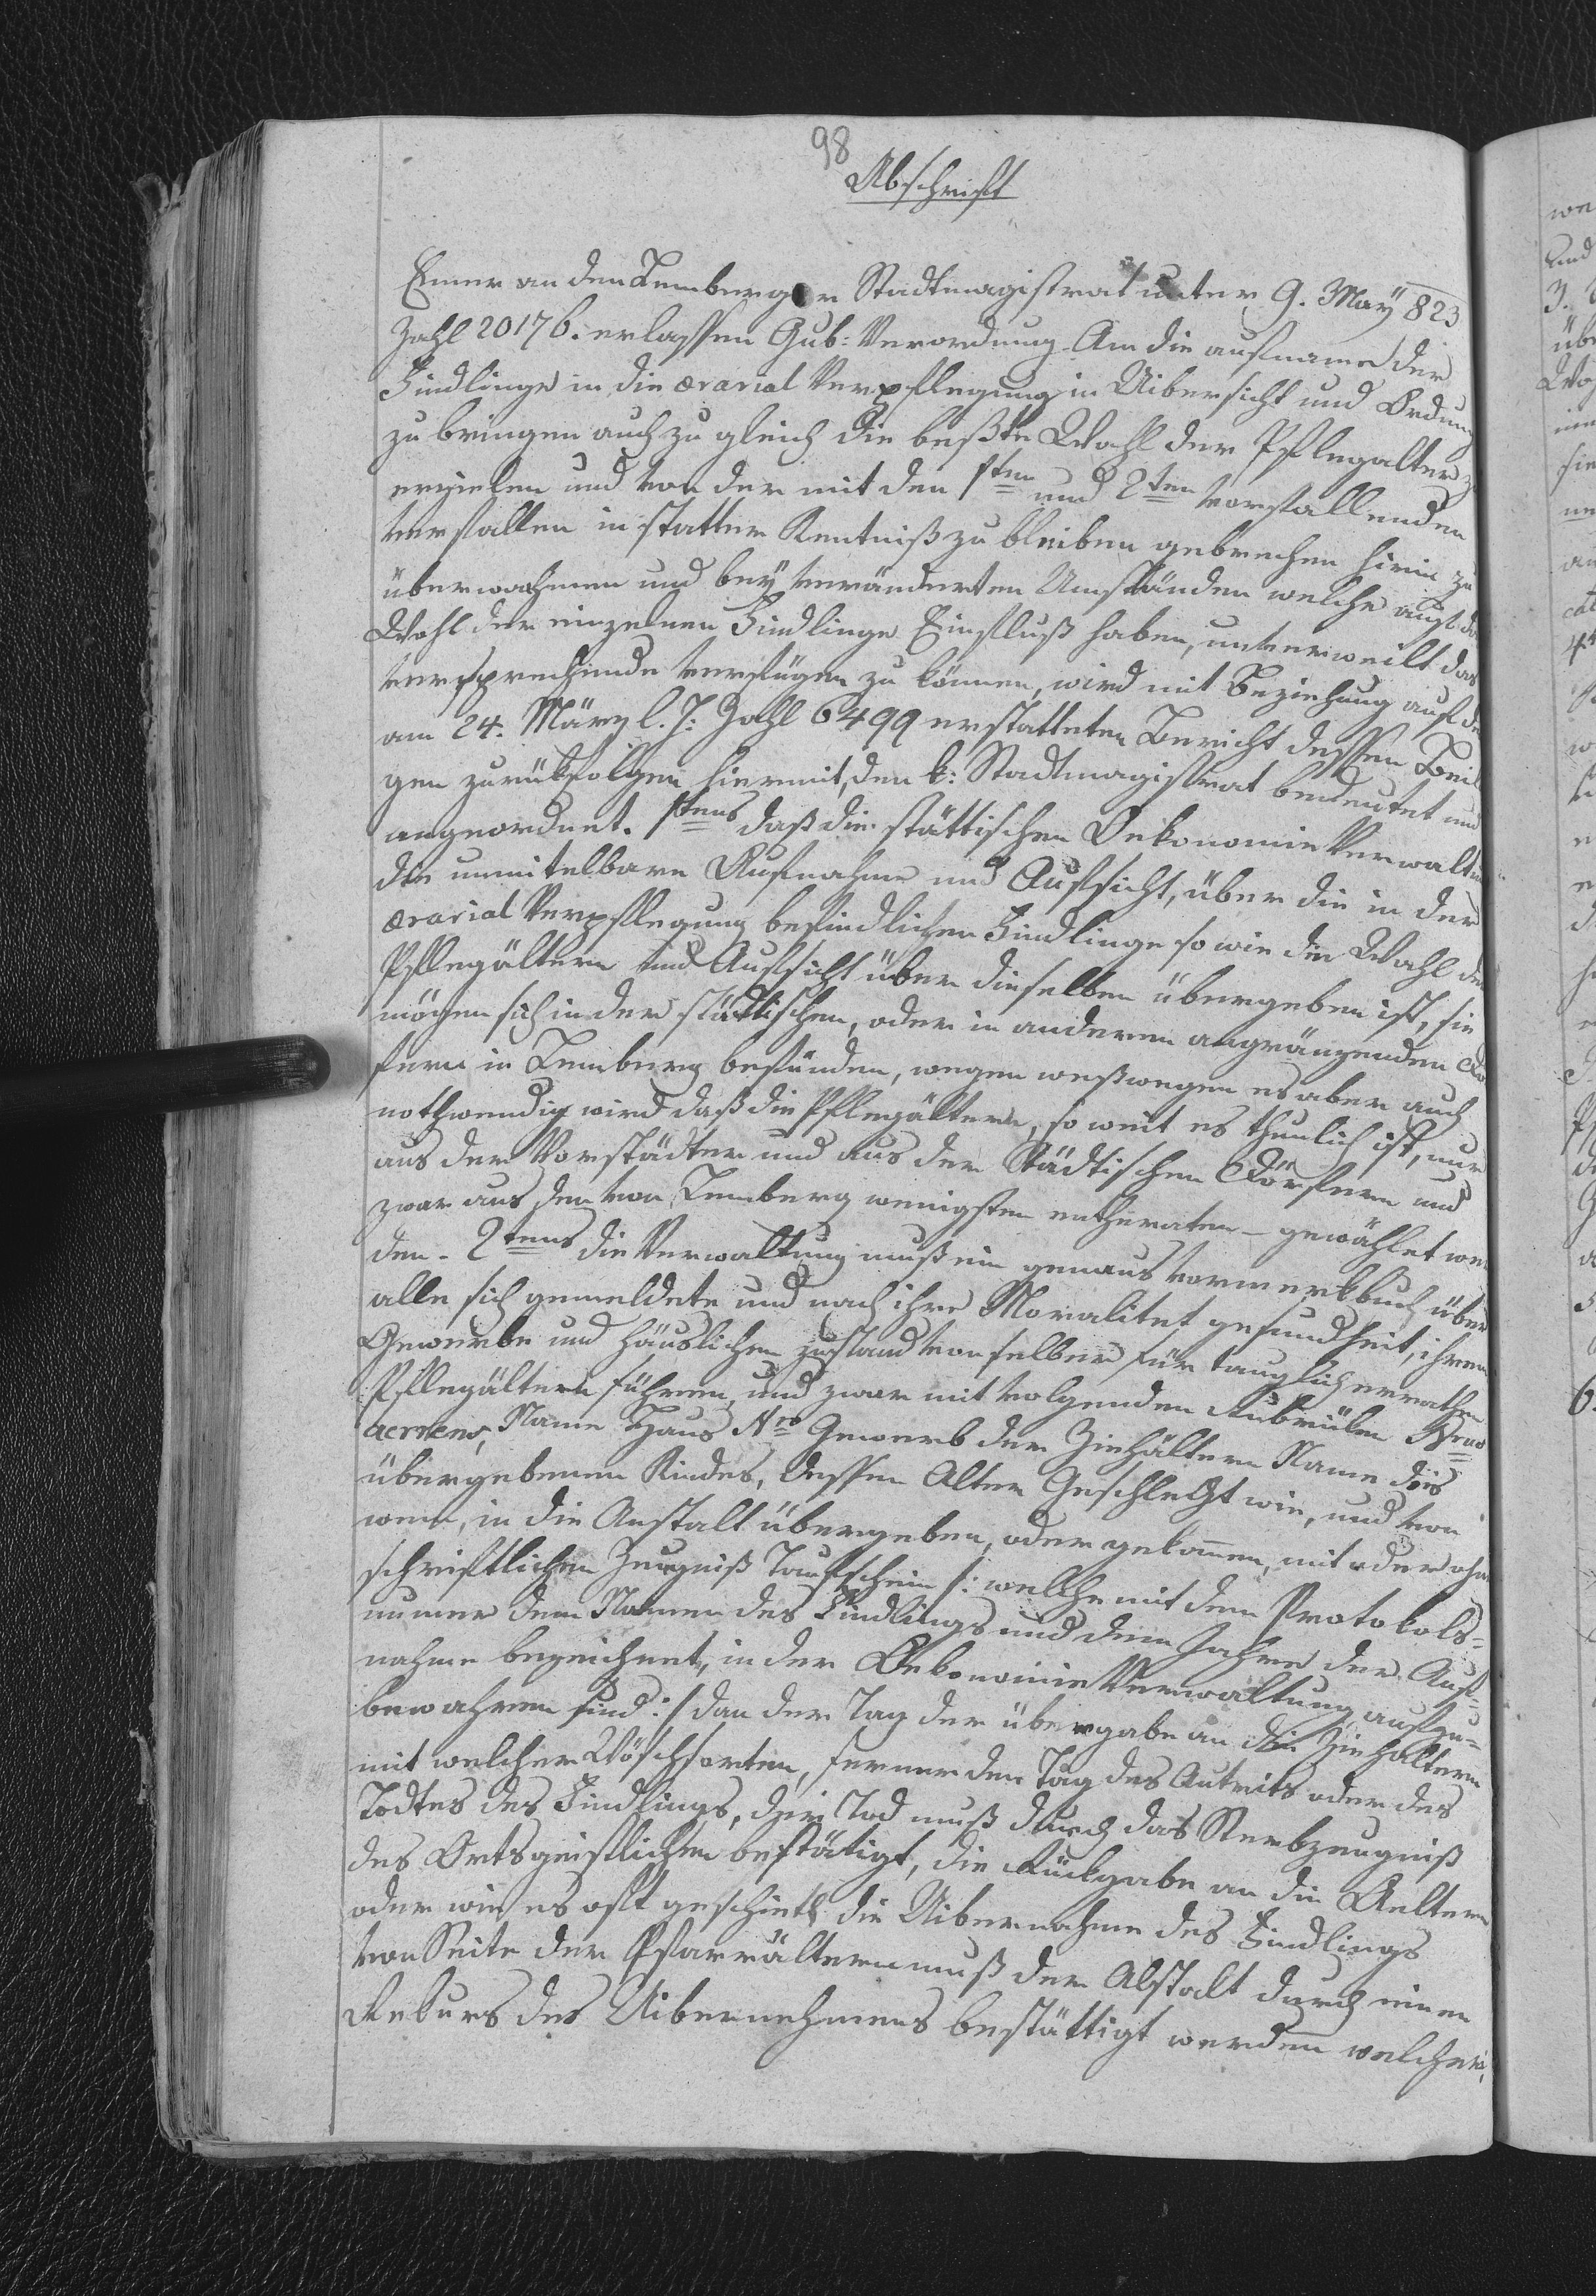 98
Abschrift
Einer an den Lemberger Stadtmagistrat unter 9. May 823
Zahl 20176. erlassen Gub: Verordnung Um die aufname der
Findlinge in die ærarial Verpflegung in Uibersicht und Ordung
zu bringen auch zu gleich die beßte Wahl der Pflegalter zu
erzielen und von der mit den 1ten und 2ten vorfallenden
vorfallen in statter Kentniß zu bleiben gebrechen hirin zu
überwachen und bey veränderten Umständen welche auf das
Wohl der einzelnen Findlinge Einfluß haben, unverweilt das
versprechende verfügen zu können, wird mit Beziehung auf den
am 24. März l. J: Zahl 6499 erstatteten Bericht dessen Beil
gen zurükfolgen hiermit, den k: Stadtmagistrat bedeutet und
angeordnet. 1tens daß die stättischen Oekonomie Verwaltu
die unmitelbare Aufnahme und Aufsicht, über die in der
ærarial Verpflegung befindlichen Findlinge so wie die Wahl der
Pflegältern und Aufsicht über dieselben übergeben ist, sie
mögen sich in der städtischen, oder in anderen angränzenden Dö
fern in Lemberg befünden, wegen weßwegen es aber auch
nothwendig wird daß die Pflegältern, so weit es thunlich ist, nur
aus den Vorstädten und aus der Städtischen Dörfern und
zwar aus den von Lemberg wenigsten entfernten – gewählet wer
den. 2tens die Verwaltung muß ein genaues vormerkbuch über
alle sich gemeldete und nach ihre Moralitet gesundheit, ihren
Gewerbe und häuslichen zustand von selber für tauglich errathen
Pflegältern führen, und zwar mit volgenden Rubriken
Name Haus Nro Gewerb der Ziehältern Name des
übergebenen Kindes, dessen Alter Geschlecht wie, und von
wem, in die Anstalt übergeben, oder gekomen, mit oder ohne
schriftlichen Zeugniß Taufschein /: welche mit dem Protokols=
numer dem Namen des Findlings und dem Jahre der Auf=
nahme bezeichnet, in der Oekonomie Verwaltung aufzu=
bewahren sind :/ dan der Tag der übergabe an die Ziehaltern
mit welcher Wöschsorten, ferner den Tag des Autrits oder des
Todtes des Findlings, der Tod muß durch das Sterbzeugniß
des Ortsgeistlichen bestätigt, die Rückgabe an die Aeltern
oder wie es oft geschieth die Uibernahme des Findlings
von Seite der Pfarrältern muß der Abstalt durch einen
Rekurs des Uibernehmers bestättigt werden welcher,